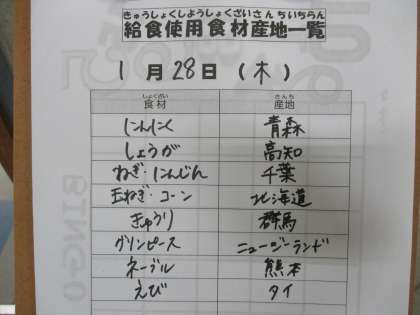 きゅうしょくしようしょくざいさんちいちらん
給食使用食材産地一覧
1月28日(木)
しょくざい さんち
食材 産地
にんにく 青森
しょうが 高知
ねぎ・にんじん 千葉
玉ねぎ・コーン 北海道
きゅうり 群馬
グリンピース ニュージーランド
ネーブル 熊本
えび タイ
BINGO